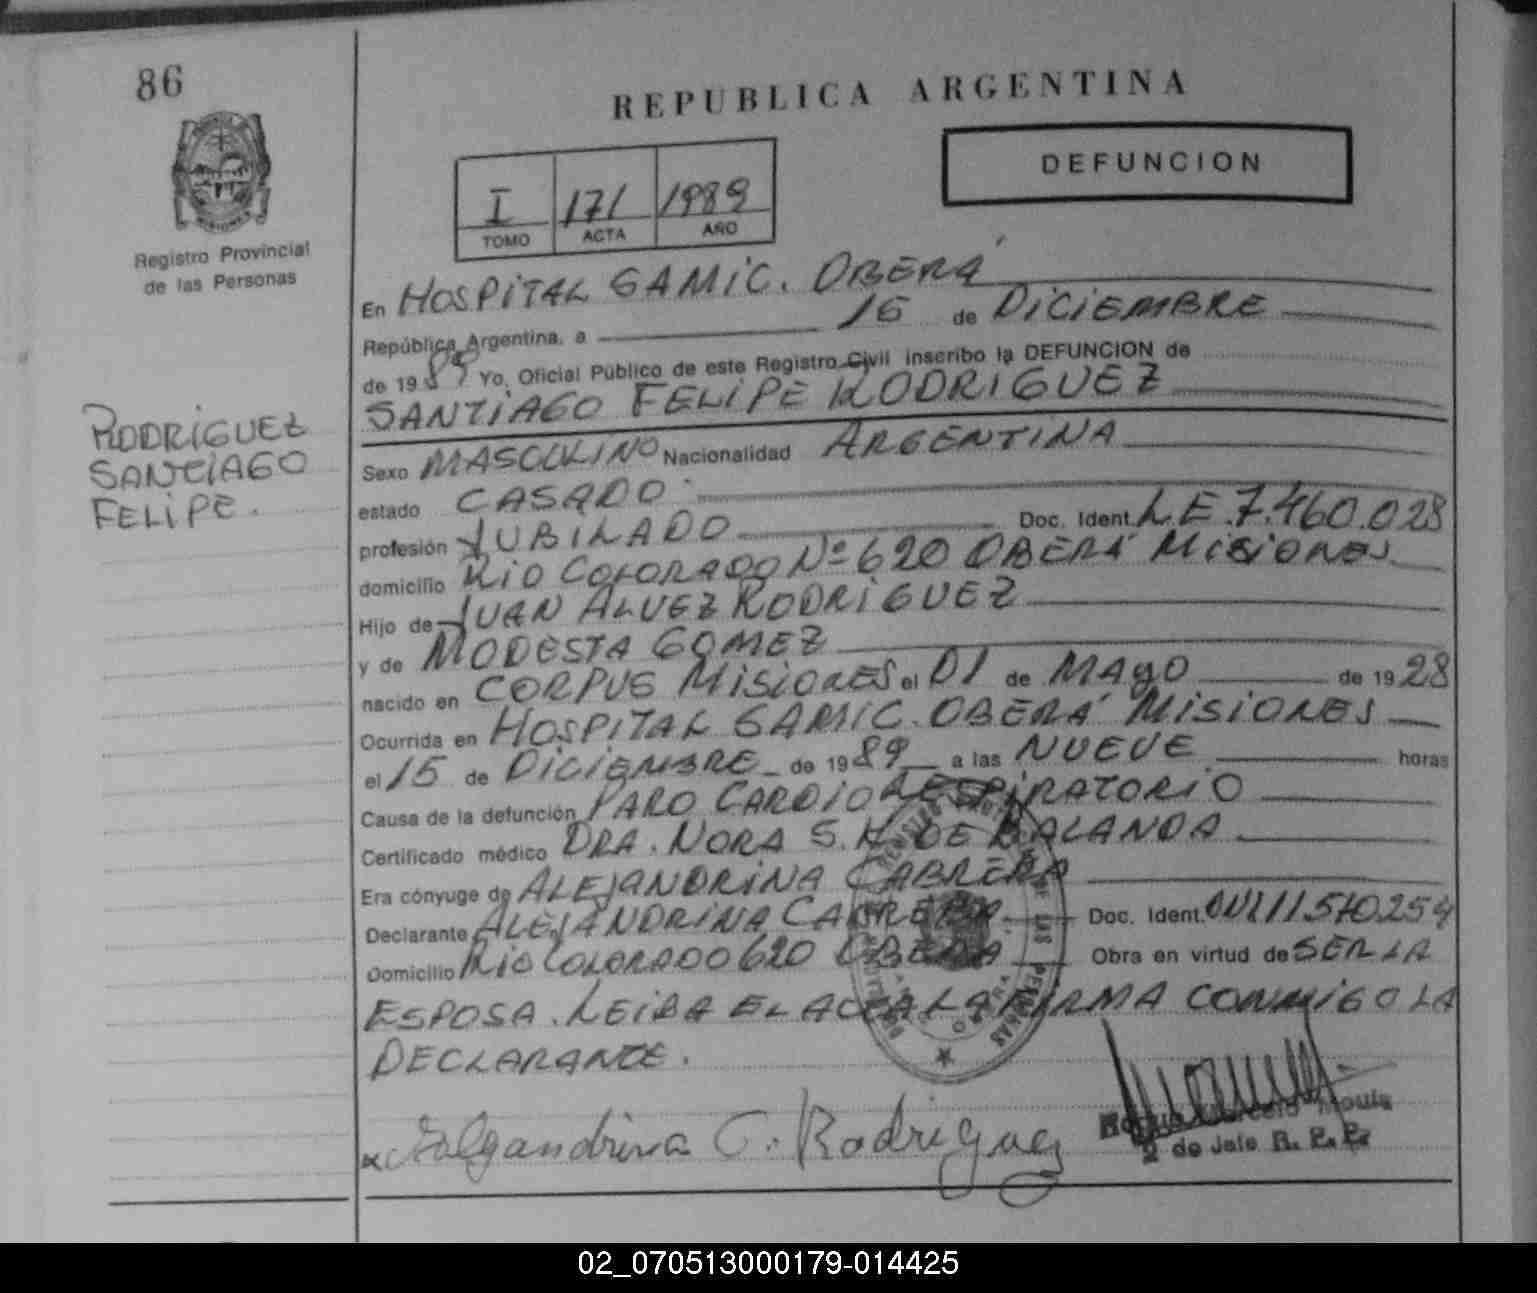 86
REPUBLICA ARGENTINA
DEFUNCION
I 171 1989
TOMO ACTA AÑO
Registro Provincial
de las Personas
RODRIGUEZ
SANTIAGO
FELIPE.
En HOSPITAL SAMIC. OBERÁ
República Argentina, a 16 de DICIEMBRE
de 1989 Yo, Oficial Público de este Registro Civil inscribo la DEFUNCION de
SANTIAGO FELIPE RODRIGUEZ
Sexo MASCULINO Nacionalidad ARGENTINA
estado CASADO
profesión JUBILADO Doc. Ident. L.E.7.460.028
domicilio RIO COLORADO Nº 620 OBERÁ MISIONES
Hijo de JUAN ALVEZ RODRIGUEZ
y de MODESTA GOMEZ
nacido en CORPUS MISIONES el 01 de MAYO de 1928
Ocurrida en HOSPITAL SAMIC. OBERÁ MISIONES
el 15 de DICIEMBRE de 1989 a las NUEVE horas
Causa de la defunción PARO CARDIORESPIRATORIO
Certificado médico DRA. NORA S. K. DE BALANDA
Era cónyuge de ALEJANDRINA CABRERA
Declarante ALEJANDRINA CABRERA Doc. Ident.
Domicilio RIO COLORADO 620 OBERA Obra en virtud de SER LA
ESPOSA. LEIDA EL ACTA LA FIRMA CONMIGO LA
DECLARANTE.
C. Rodriguez
2 de Jefe R. P. P.
02_070513000179-014425